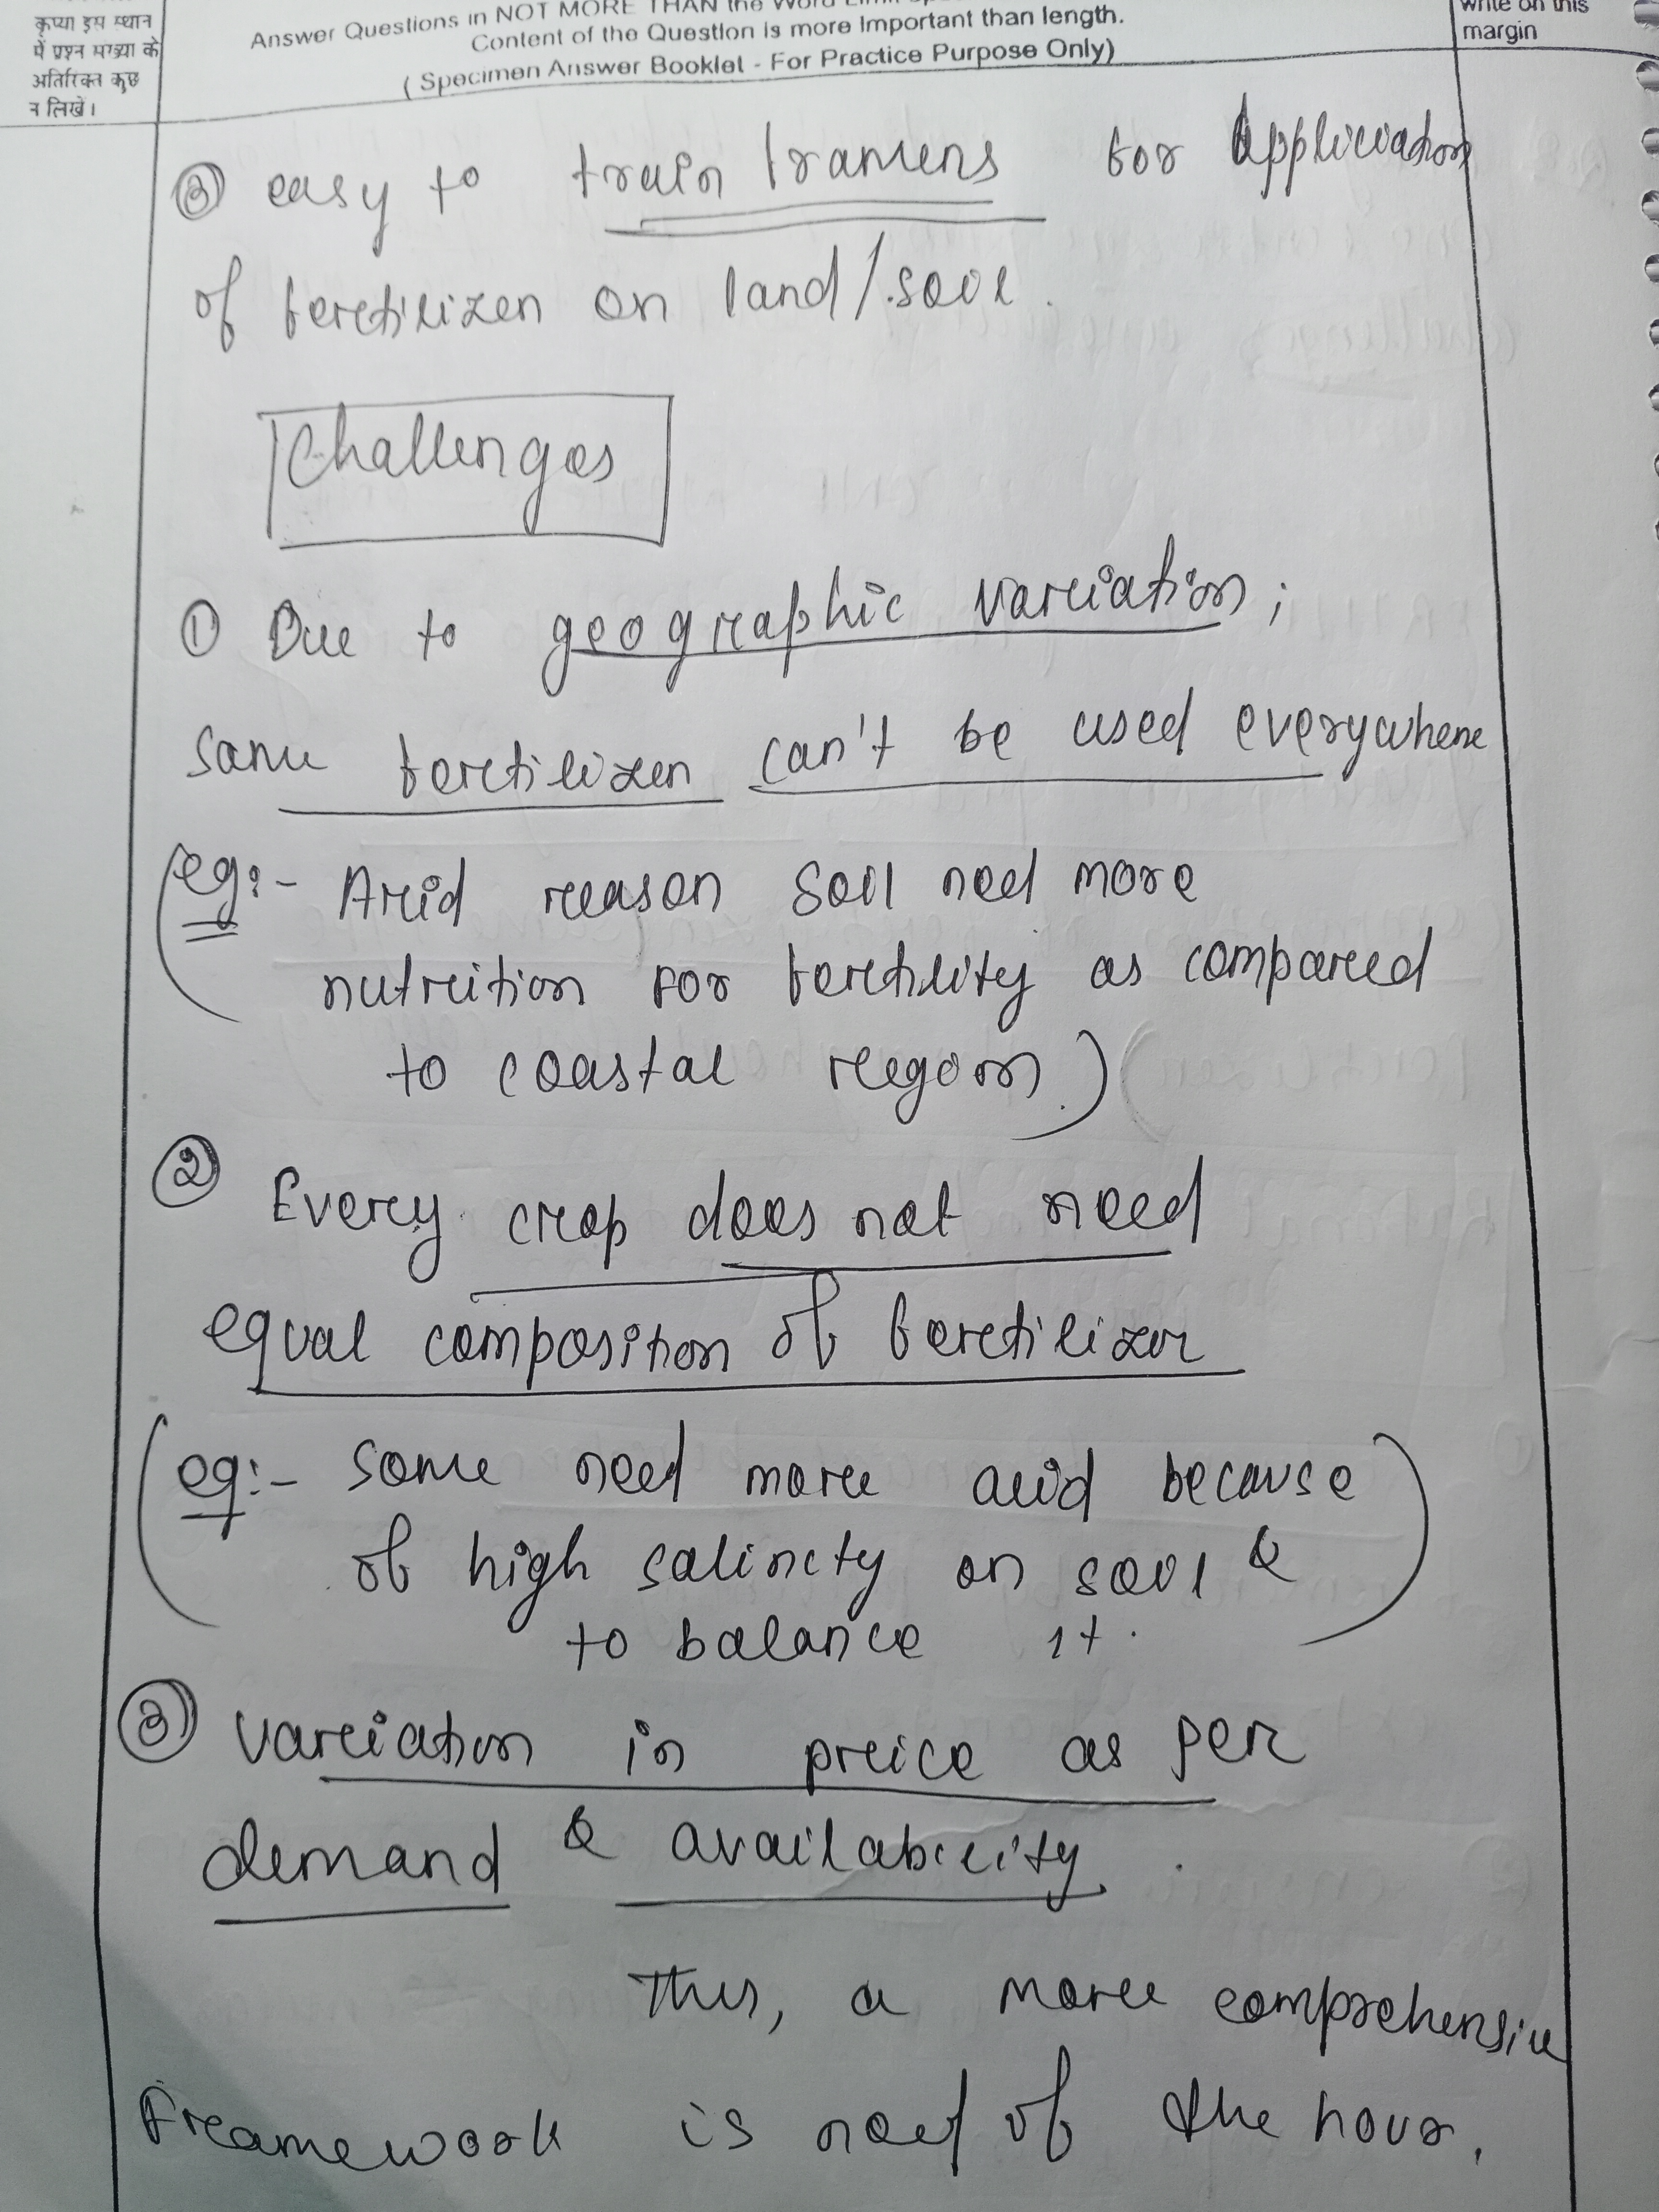 कृप्या इस स्थान
में प्रश्न संख्या के
अतिरिक्त कुछ
न लिखें।
Answer Questions in NOT MORE THAN the Word Limit
Content of the Question is more Important than length.
( Specimen Answer Booklet - For Practice Purpose Only)
write on this
margin
③ easy to train framens for Appliciation
of feretilizen on land/soil.
Challenges
① Due to geographic vareiation;
same feretilizen can't be used everywhere
(eg:- Arid reason soil need more
nutreition for feretility as compared
to coastal region.)
② Every crop does not need
equal composition of feretilizer
(eg:- some need more acid because
of high salinity on soil &
to balance it.)
③ vareiation in preice as per
demand & availability.
Thus, a more comprehensive
Freamework is need of the hour.